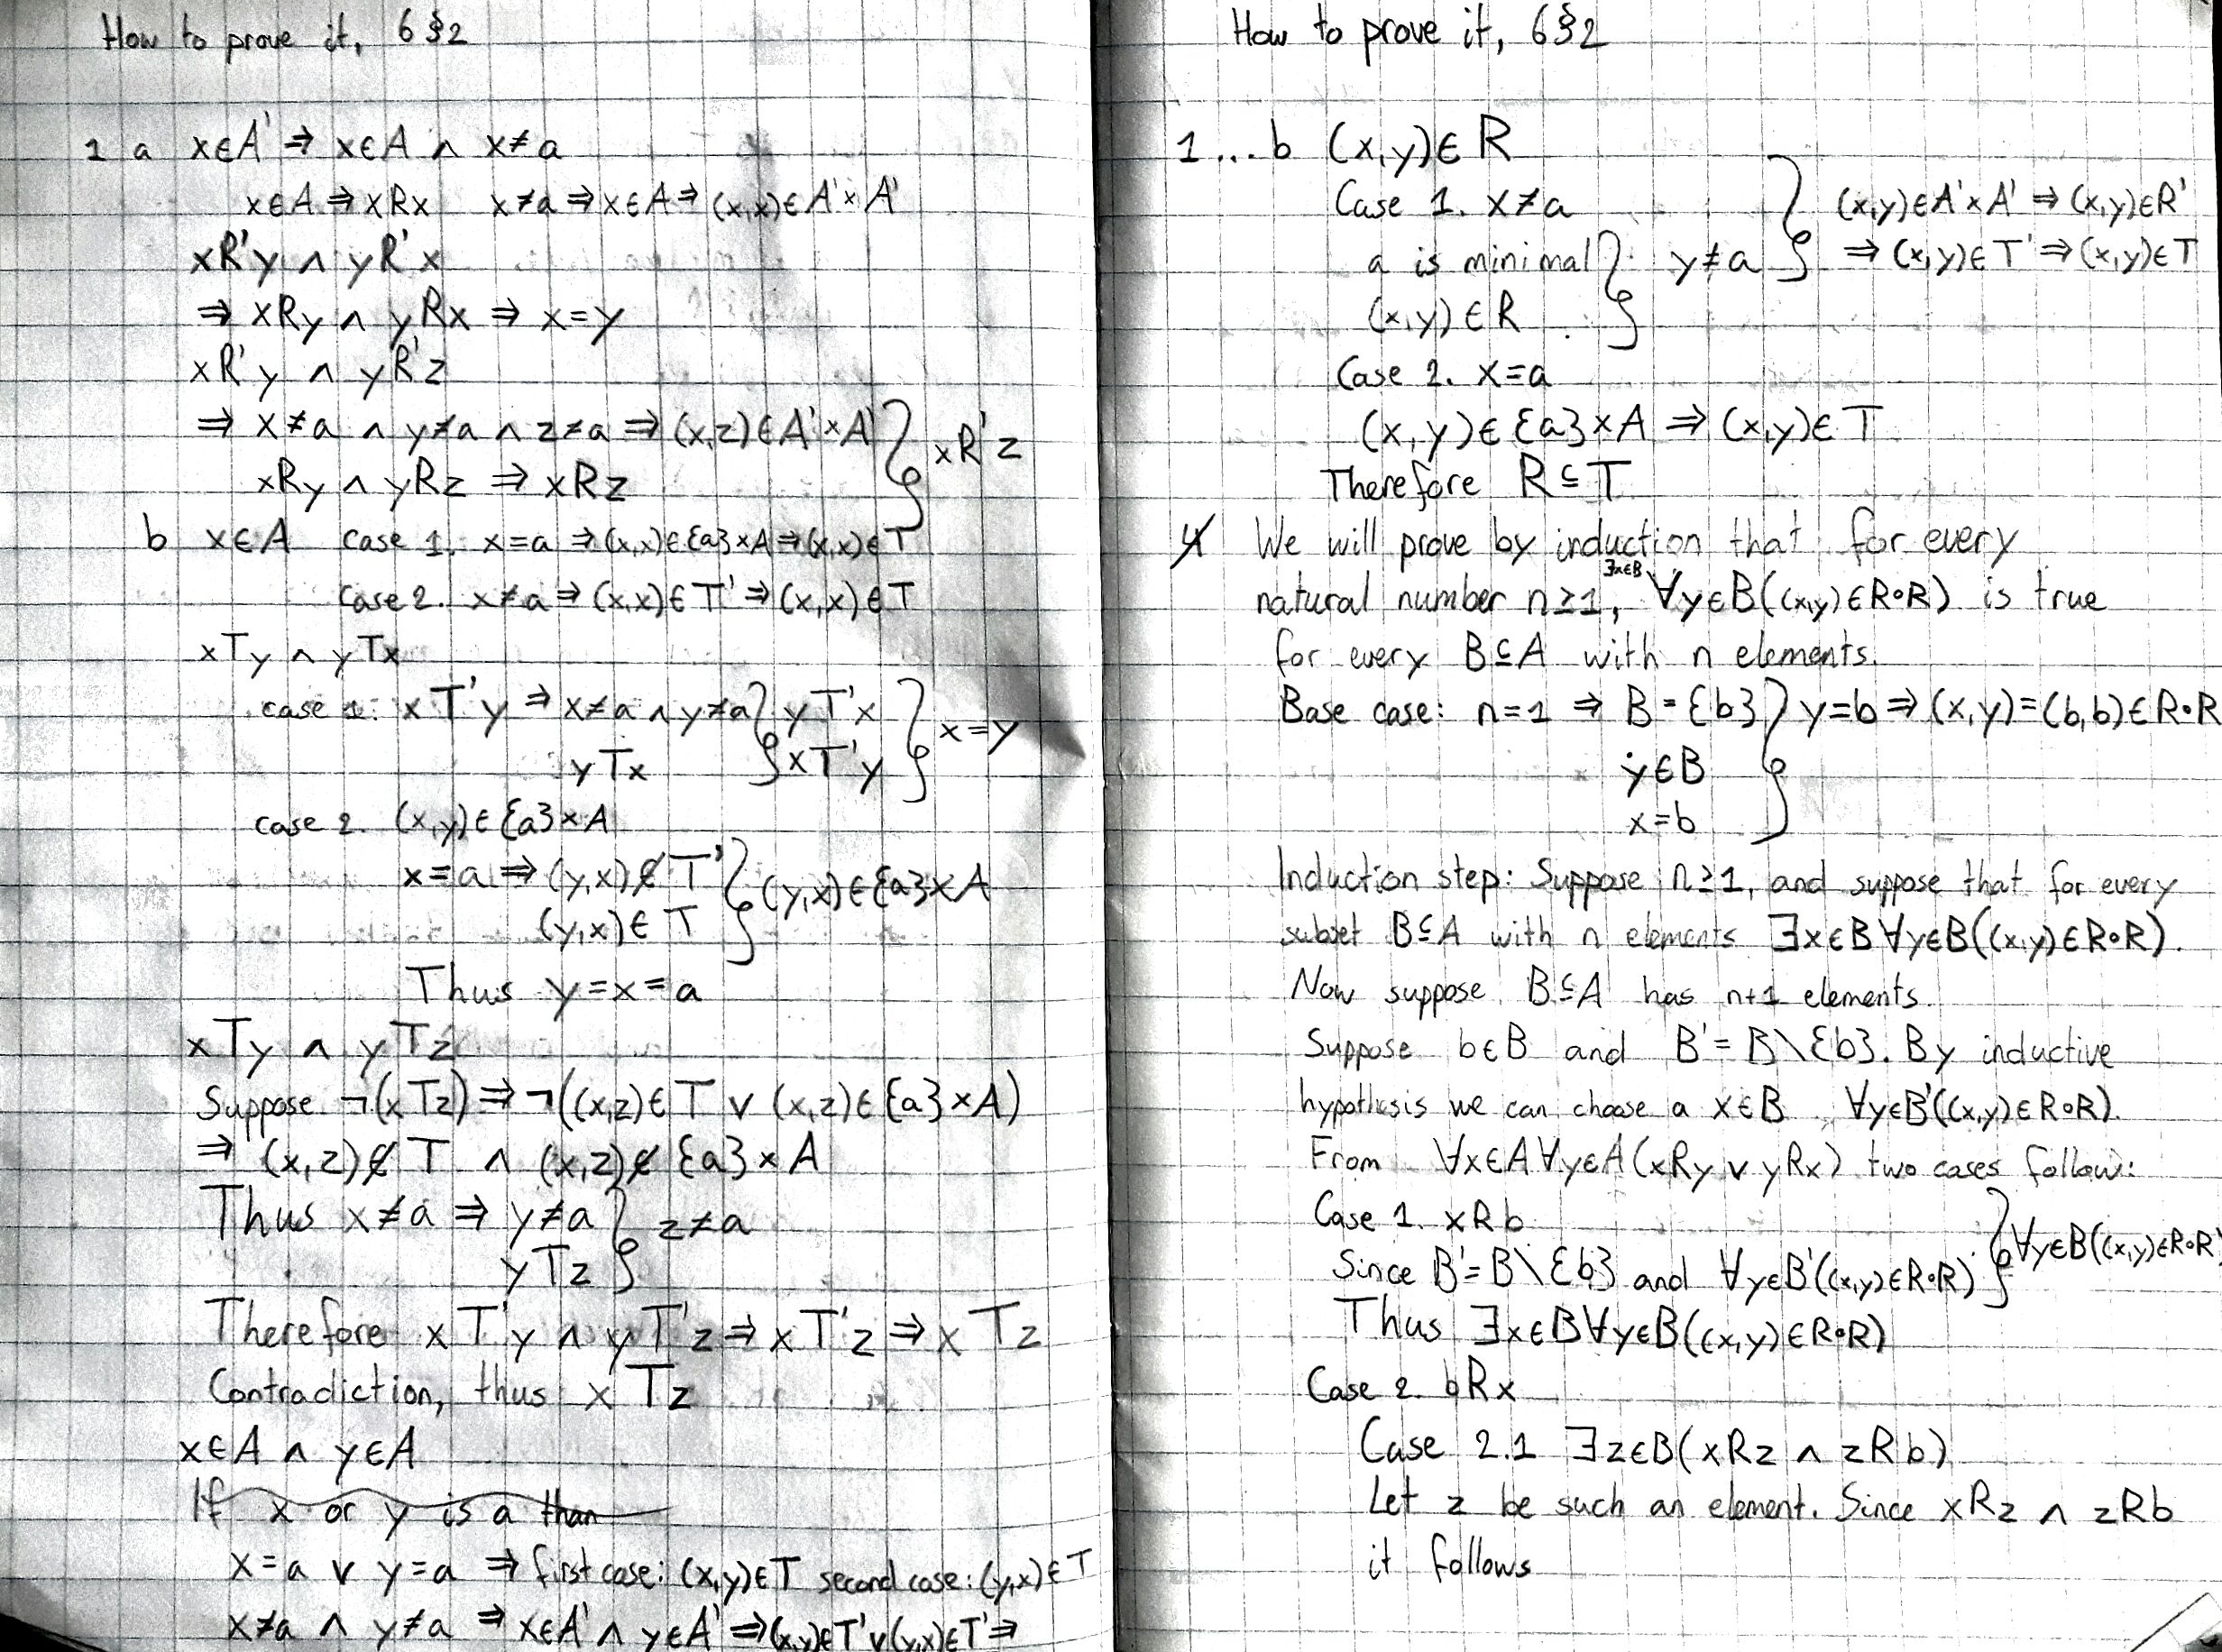 How to prove it, 6§2
1 a x∈A' ⇒ x∈A ∧ x≠a
x∈A ⇒ xRx x≠a ⇒ x∈A ⇒ (x,x)∈A'×A'
xR'y ∧ yR'x
⇒ xRy ∧ yRx ⇒ x=y
xR'y ∧ yR'z
⇒ x≠a ∧ y≠a ∧ z≠a ⇒ (x,z)∈A'×A' } xR'z
xRy ∧ yRz ⇒ xRz
b x∈A case 1. x=a ⇒ (x,x)∈{a}×A ⇒ (x,x)∈T
case 2. x≠a ⇒ (x,x)∈T' ⇒ (x,x)∈T
xTy ∧ yTx
case 1: xT'y ⇒ x≠a ∧ y≠a } yT'x } x=y
yTx } xT'y
case 2. (x,y)∈{a}×A
x=a ⇒ (y,x)∉T' } (y,x)∈{a}×A
(y,x)∈T
Thus y=x=a
xTy ∧ yTz
Suppose ¬(xTz) ⇒ ¬((x,z)∈T ∨ (x,z)∈{a}×A)
⇒ (x,z)∉T ∧ (x,z)∉{a}×A
Thus x≠a ⇒ y≠a } z≠a
yTz
Therefore xT'y ∧ yT'z ⇒ xT'z ⇒ xTz
Contradiction, thus xTz
x∈A ∧ y∈A
If x or y is a than
x=a ∨ y=a ⇒ first case: (x,y)∈T second case: (y,x)∈T
x≠a ∧ y≠a ⇒ x∈A' ∧ y∈A' ⇒ (x,y)∈T' ∨ (y,x)∈T' ⇒
How to prove it, 6§2
1...b (x,y)∈R
Case 1. x≠a } (x,y)∈A'×A' ⇒ (x,y)∈R'
a is minimal } y≠a } ⇒ (x,y)∈T' ⇒ (x,y)∈T
(x,y)∈R
Case 2. x=a
(x,y)∈{a}×A ⇒ (x,y)∈T
Therefore R⊆T
4 We will prove by induction that for every
natural number n≥1, ∃x∈B ∀y∈B((x,y)∈R∘R) is true
for every B⊆A with n elements.
Base case: n=1 ⇒ B={b} } y=b ⇒ (x,y)=(b,b)∈R∘R
y∈B
x=b
Induction step: Suppose n≥1, and suppose that for every
subset B⊆A with n elements ∃x∈B∀y∈B((x,y)∈R∘R).
Now suppose B⊆A has n+1 elements.
Suppose b∈B and B'=B\{b}. By inductive
hypothesis we can choose a x∈B ∀y∈B'((x,y)∈R∘R).
From ∀x∈A∀y∈A(xRy ∨ yRx) two cases follow:
Case 1. xRb
Since B'=B\{b} and ∀y∈B'((x,y)∈R∘R) } ∀y∈B((x,y)∈R∘R)
Thus ∃x∈B∀y∈B((x,y)∈R∘R)
Case 2. bRx
Case 2.1 ∃z∈B(xRz ∧ zRb)
Let z be such an element. Since xRz ∧ zRb
it follows